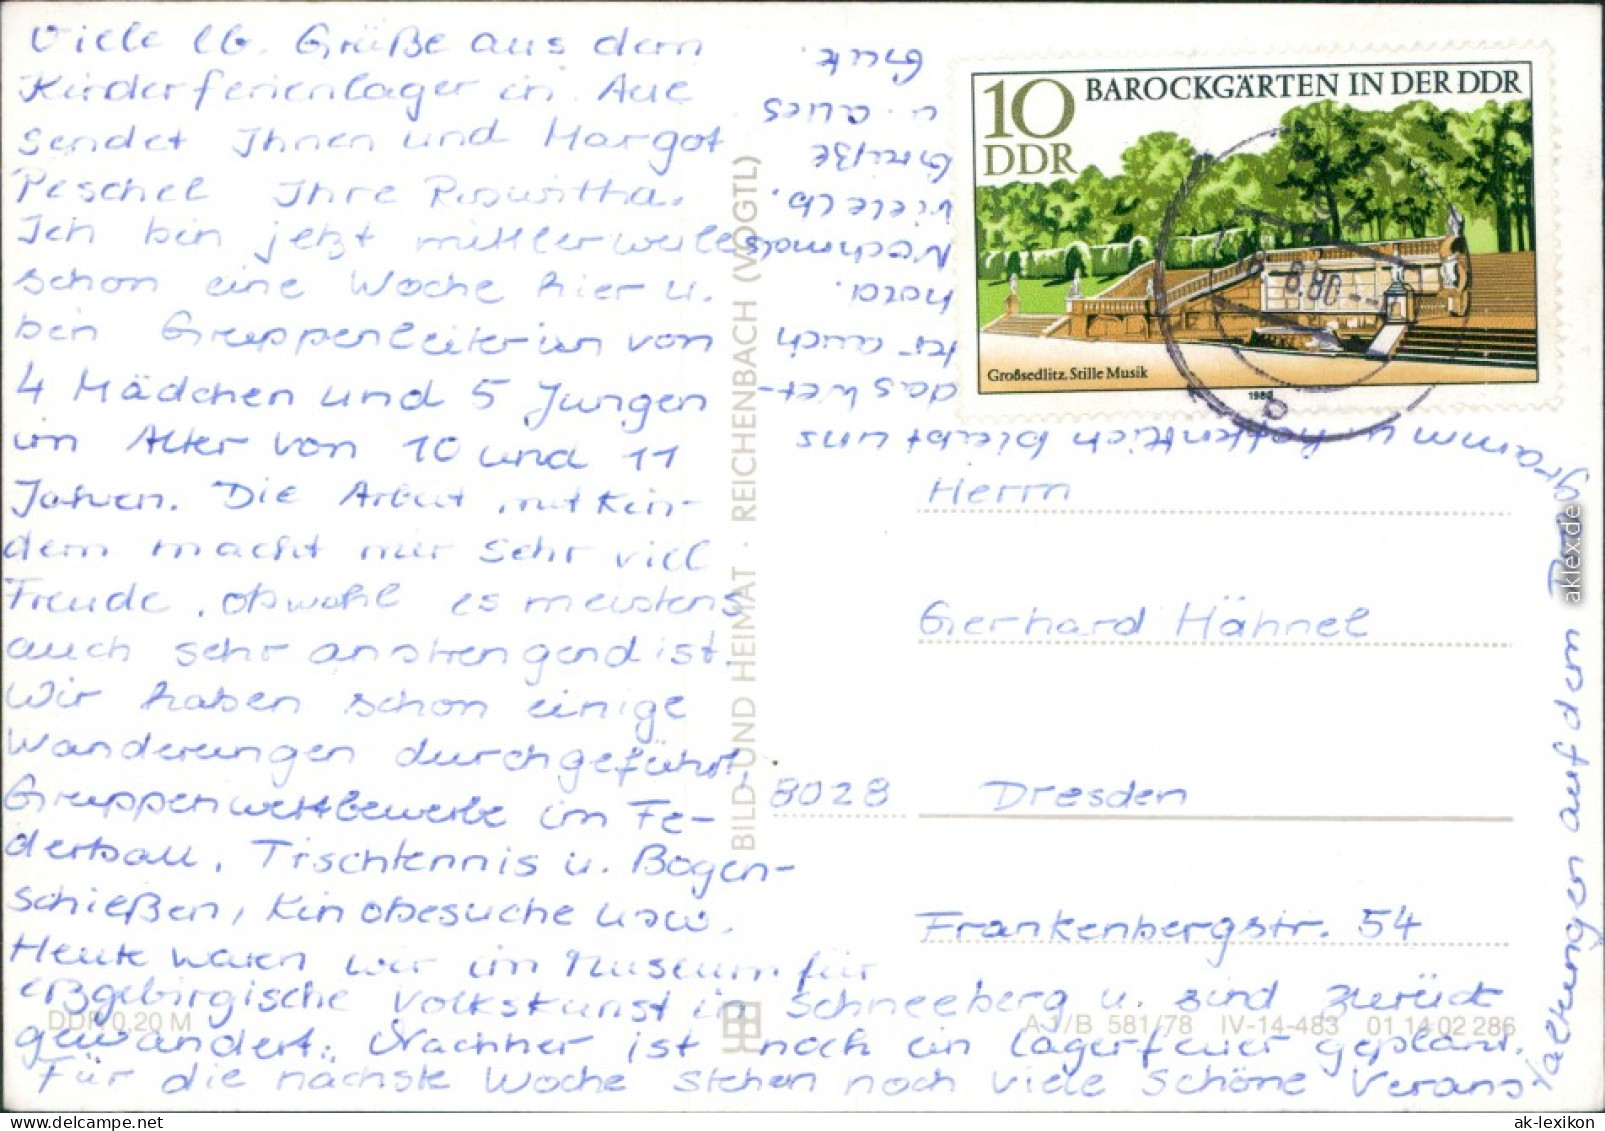 Viele lb. Grüße aus dem
Kinderferienlager in Aue
sendet Ihnen und Margot
Peschel Ihre Roswitha.
Ich bin jetzt mittlerweile
schon eine Woche hier u.
bin Gruppenleiterin von
4 Mädchen und 5 Jungen
im Alter von 10 und 11
Jahren. Die Arbeit mit Kin-
dern macht mir sehr viel
Freude, obwohl es meistens
auch sehr anstrengend ist.
Wir haben schon einige
Wanderungen durchgeführt,
Gruppenwettbewerbe im Fe-
derball, Tischtennis u. Bogen-
schießen, Kinobesuche usw.
Heute waren wir im Museum für
erzgebirgische Volkskunst in Schneeberg u. sind zurück
gewandert. Nachher ist noch ein Lagerfeuer geplant.
Für die nächste Woche stehen noch viele schöne Verans
taltungen auf dem Programm
u. hoffentlich bleibt uns
das Wet-
ter auch
hold.
Nochmals
viele lb.
Grüße
u. alles
Gute.
10
DDR
BAROCKGÄRTEN IN DER DDR
Großsedlitz, Stille Musik
1980
8.80
Herrn
Gerhard Hähnel
8028 Dresden
Frankenbergstr. 54
BILD UND HEIMAT · REICHENBACH (VOGTL)
DDR 0,20 M
A 1/B 581/78 IV-14-483 01 14 02 286
aklex.de
ak-lexikon